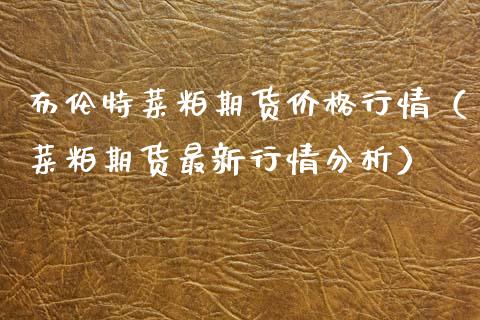 布伦特菜粕期货价格行情（
菜粕期货最新行情分析）